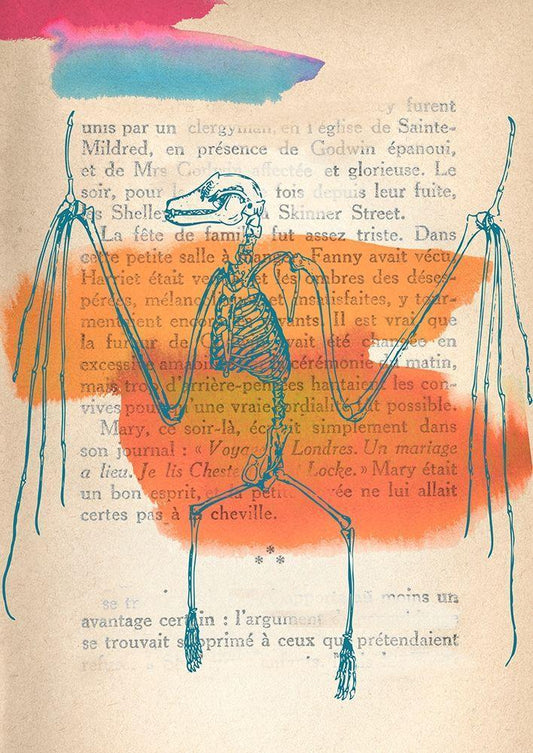 y furent
unis par un clergyman, en l'église de Sainte-
Mildred, en présence de Godwin épanoui,
et de Mrs affectée et glorieuse. Le
soir, pour fois depuis leur fuite,
Shelle Skinner Street.
La fête de famille fut assez triste. Dans
cette petite salle à Fanny avait vécu
Harriet était et les ombres des déses-
pérées, mélanc et insatisfaites, y tour-
mentent enco vivants. Il est vrai que
la fureur de avait été changée en
excessive amabi cérémonie matin,
mais trop d'arrière-pensées hantaient les con-
vives pou une vraie cordialit fût possible.
Mary, ce soir-là, écrit simplement dans
son journal : « Voya Londres. Un mariage
a lieu. Je lis Cheste Locke. » Mary était
un bon esprit, la petite vée ne lui allait
certes pas à la cheville.
***
se tr moins un
avantage certain : l'argument
se trouvait supprimé à ceux qui prétendaient